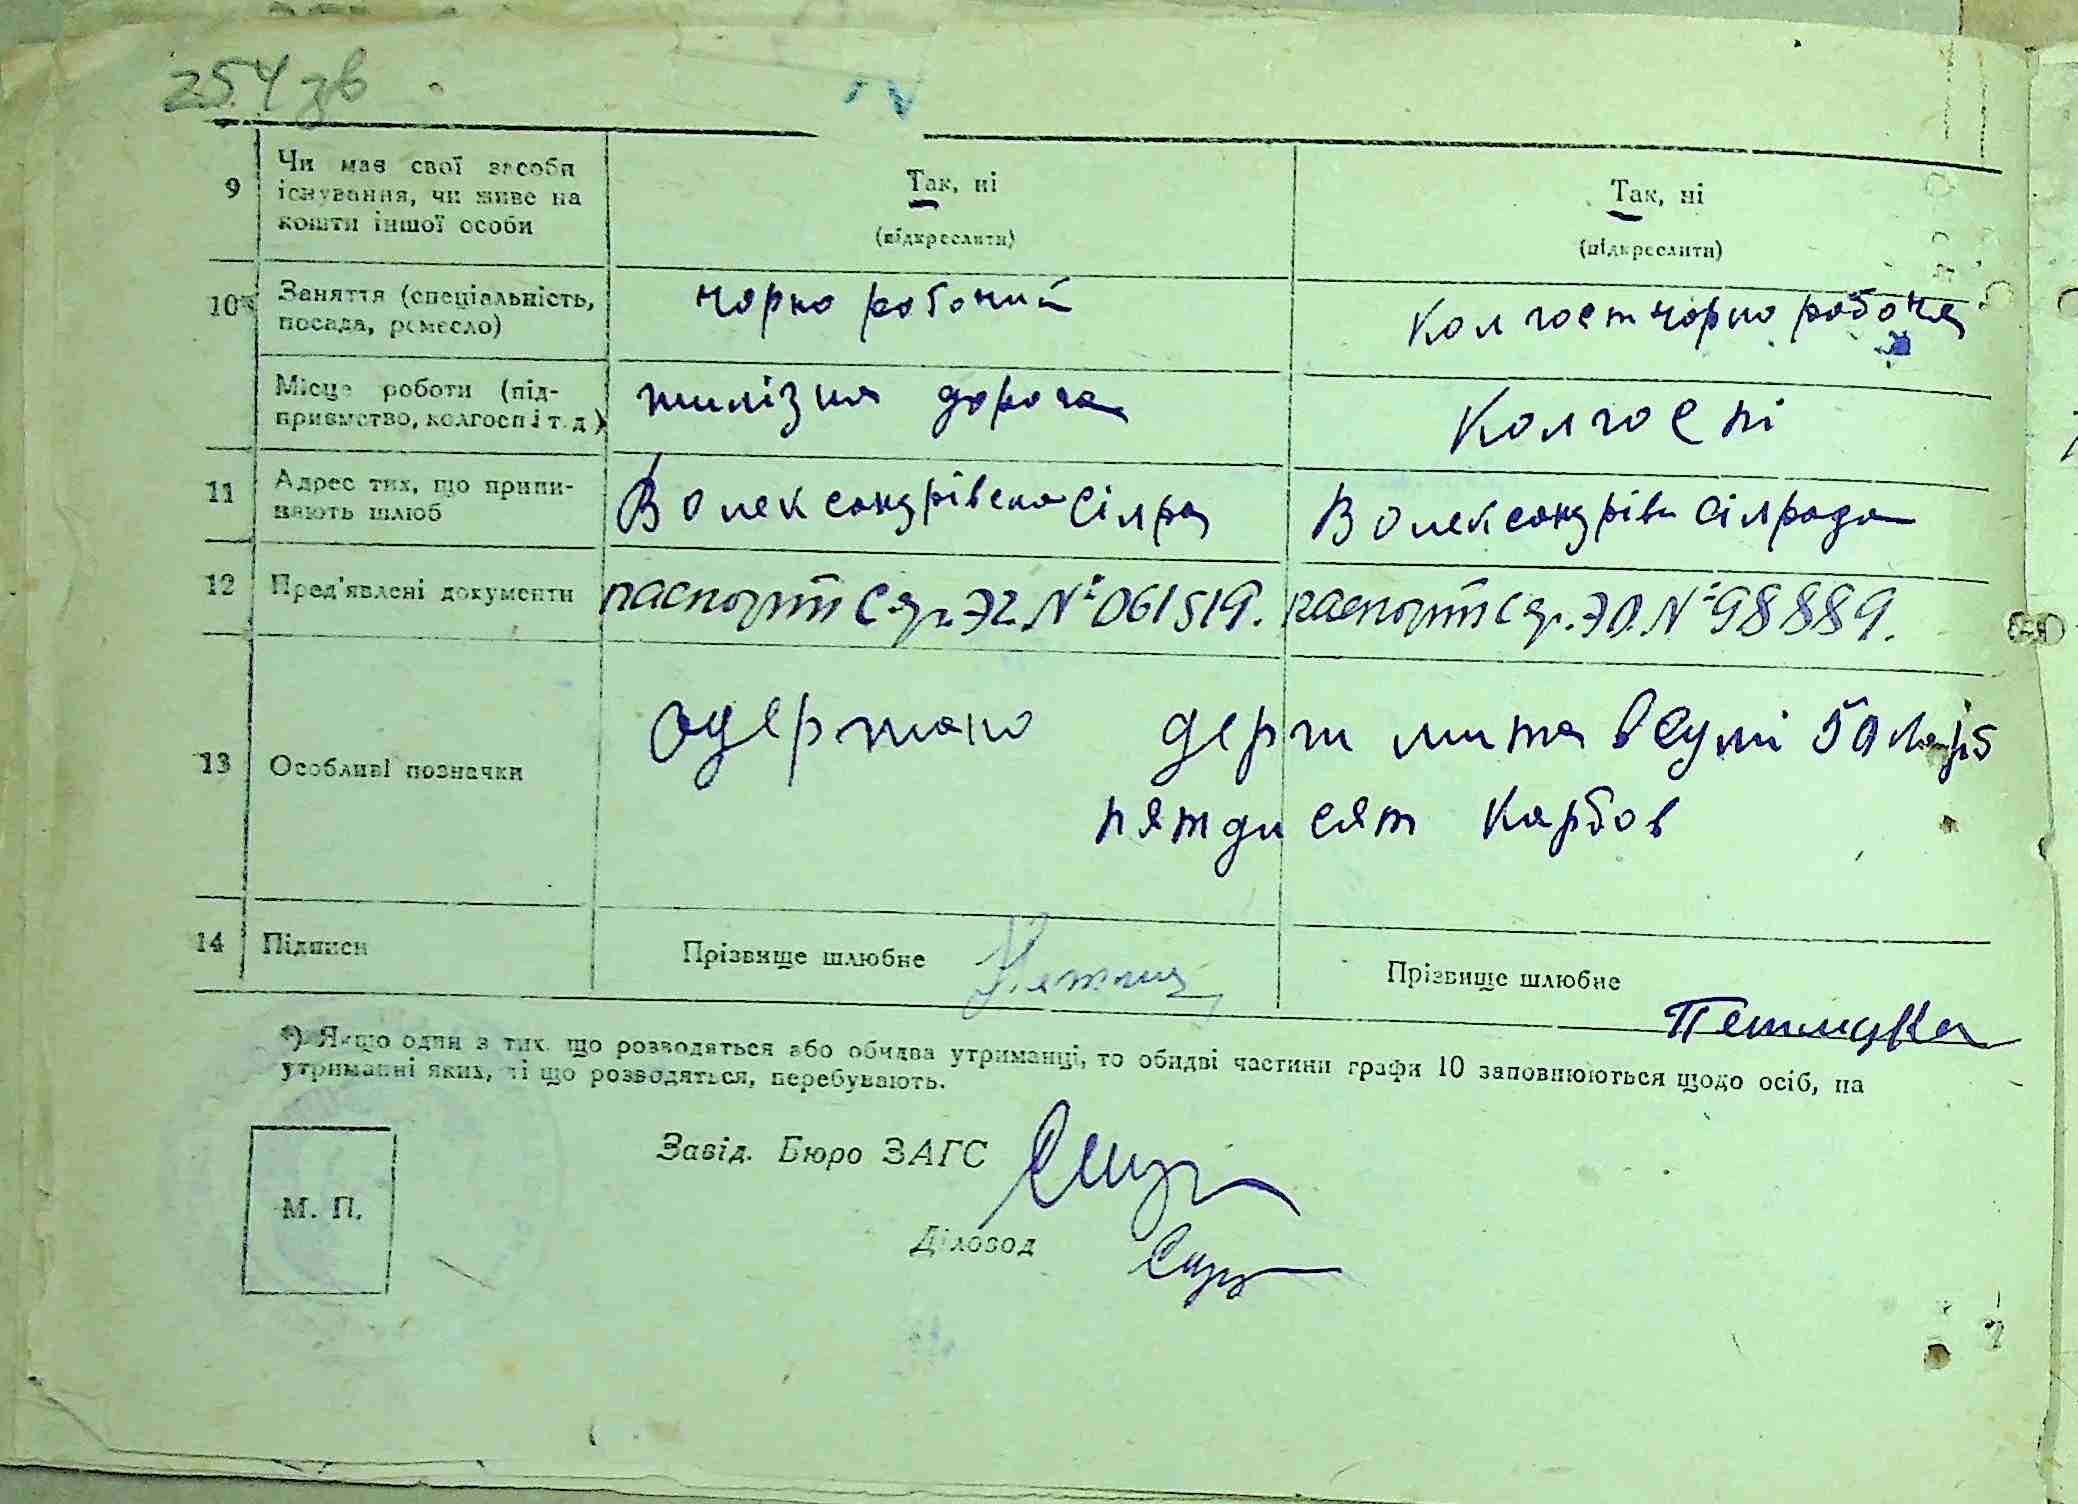 254 зв
9 Чи має свої засоби існування, чи живе на кошти іншої особи
Так, ні
(підкреслити)
Так, ні
(підкреслити)
10*) Заняття (спеціальність, посада, ремесло)
чорно робочий
Колгосп чорно робоча
Місце роботи (підприємство, колгосп і т. д.)
жилізна дорога
Колгоспі
11 Адрес тих, що припиняють шлюб
В олександрівска сілра
В олександрівс сілрада
12 Пред'явлені документи
паспорт Сер. ЭР № 061519.
паспорт Сер. ЭО № 98889.
13 Особливі позначки
Одержано держ мита в сумі 50
пятдисят карбов
14 Підписи
Прізвище шлюбне
Прізвище шлюбне
*) Якщо один з тих, що розводяться або обидва утриманці, то обидві частини графи 10 заповнюються щодо осіб, на
утриманні яких, ті що розводяться, перебувають.
М. П.
Завід. Бюро ЗАГС
Діловод